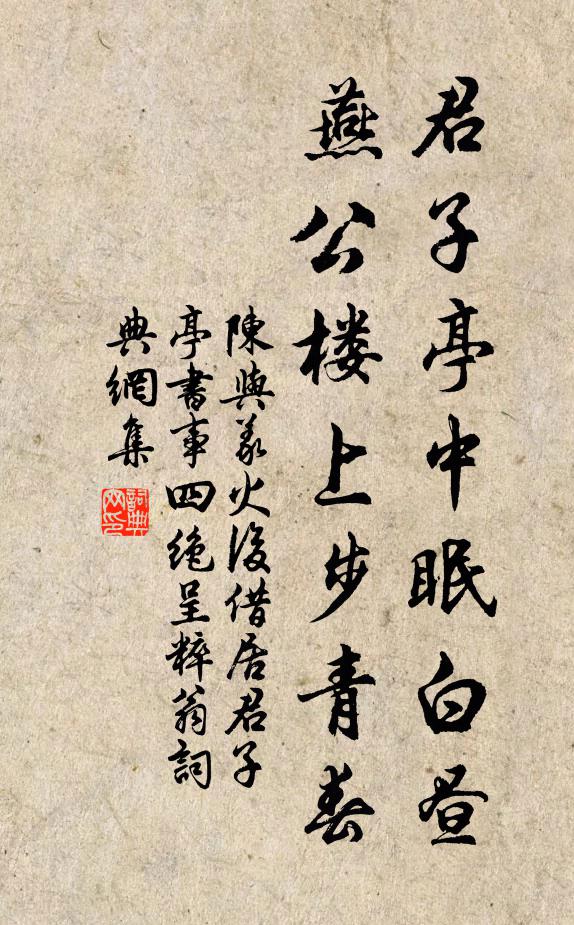 君子亭中眠白昼
燕公楼上步青春
陳與義火後借居君子
亭書事四絶呈粹翁詞
典網集
詞典网印